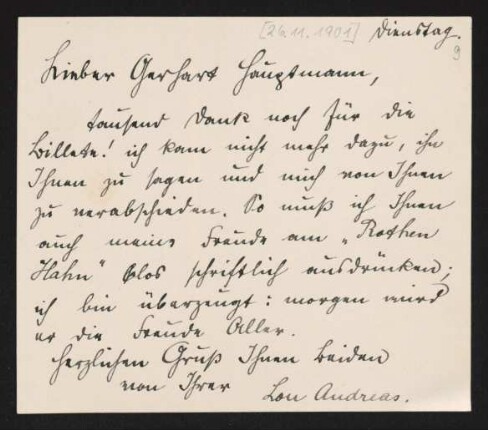 [26.11.1901] Dienstag.
9
Lieber Gerhart Hauptmann,
tausend Dank noch für die
Billete! ich kam nicht mehr dazu, ihn
Ihnen zu sagen und mich von Ihnen
zu verabschieden. So muß ich Ihnen
auch meine Freude am „Rothen
Hahn" blos schriftlich ausdrücken;
ich bin überzeugt: morgen wird
er die Freude Aller.
Herzlichen Gruß Ihnen beiden
von Ihrer Lou Andreas.